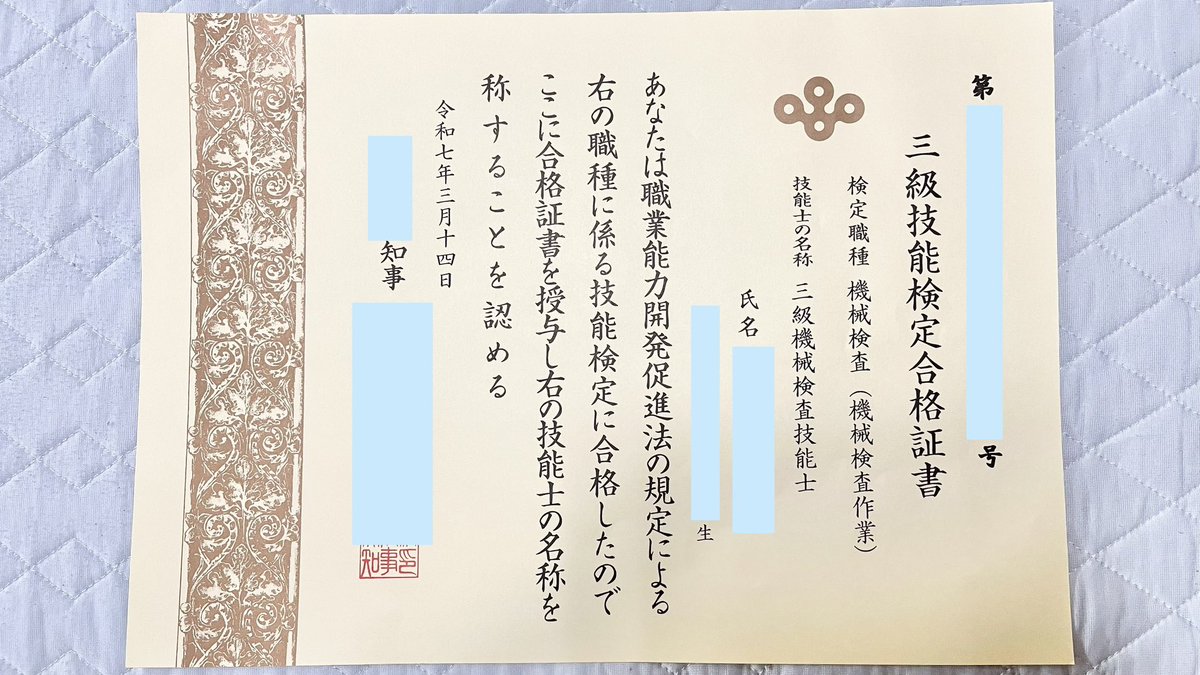 第 号
三級技能検定合格証書
検定職種 機械検査（機械検査作業）
技能士の名称 三級機械検査技能士
氏名
生
あなたは職業能力開発促進法の規定による
右の職種に係る技能検定に合格したので
ここに合格証書を授与し右の技能士の名称を
称することを認める
令和七年三月十四日
知事
知事印